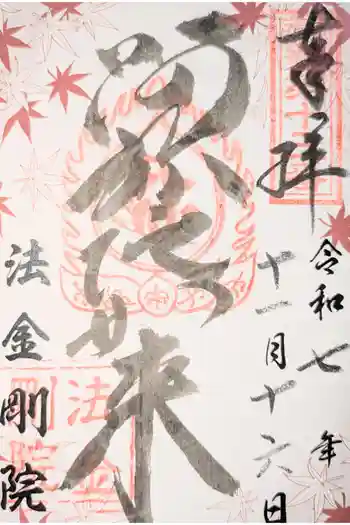 奉拝
令和七年
十一月十六日
阿弥陀如来
法金剛院
法金
剛院